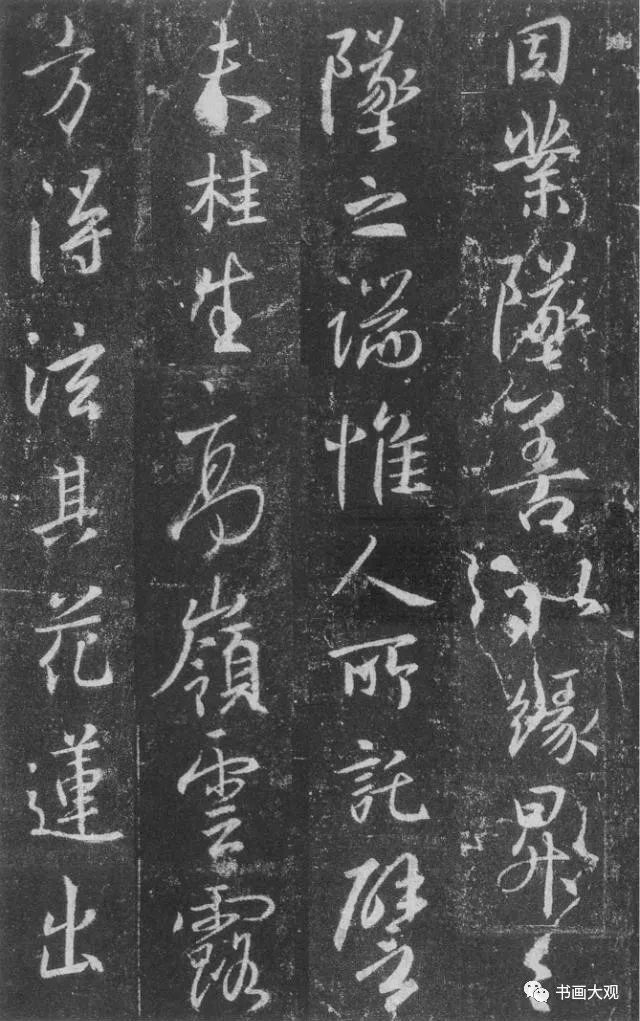 因業墜善以緣昇々
墜之端惟人所託譬
夫桂生高嶺雲露
方得泫其花蓮出
书画大观